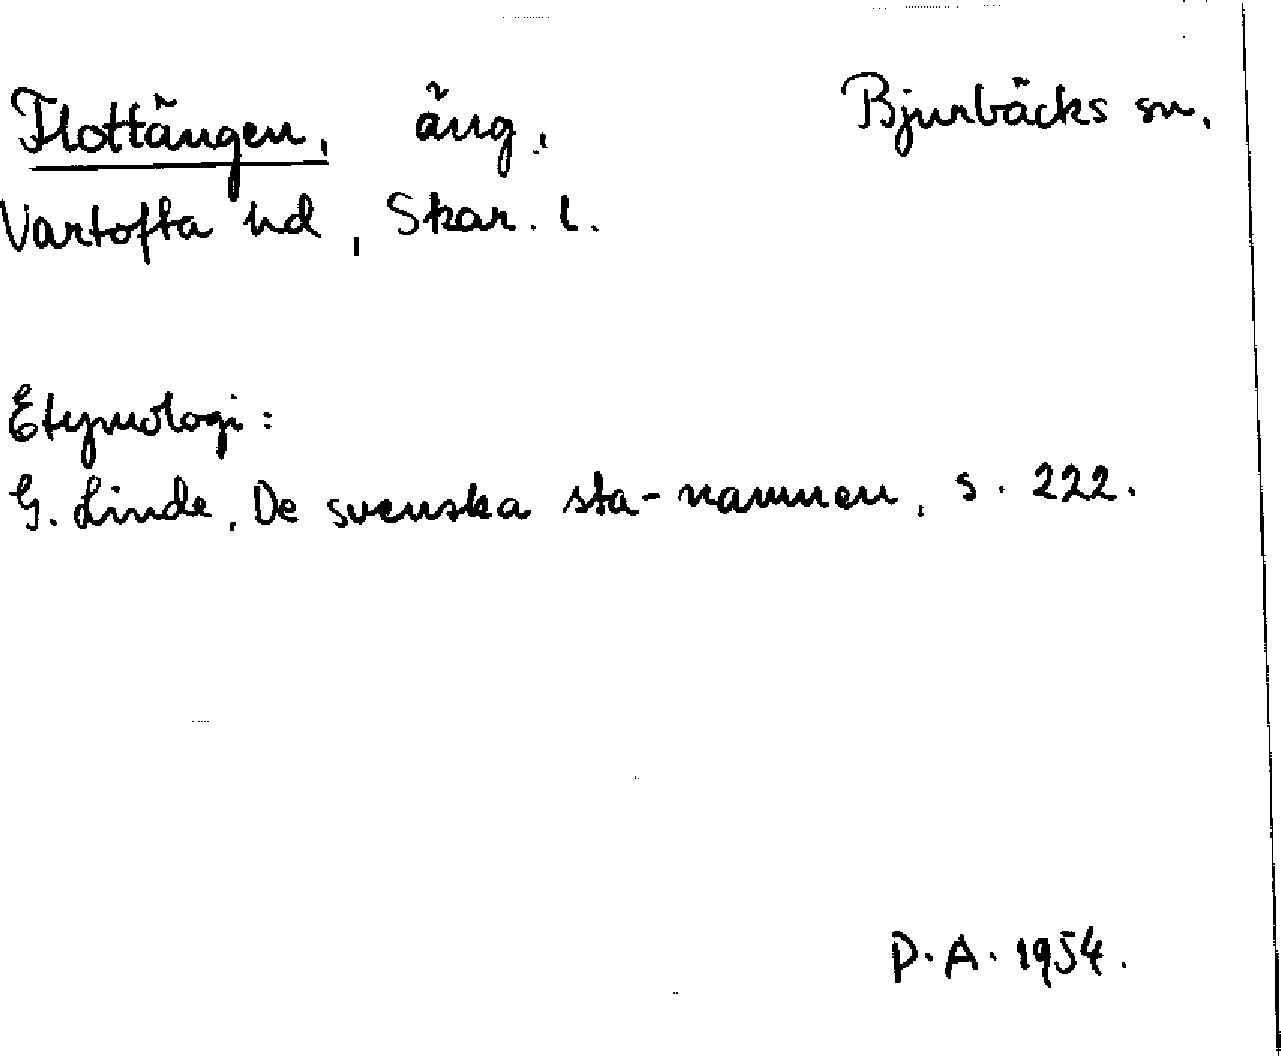 Flottängen, äng, Bjurbäcks sn,
Vartofta hd, Skar. l.
Etymologi:
G. Linde, De svenska sta-namnen, s. 222.
P. A. 1954.